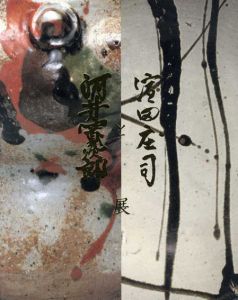 河井寛次郎
と
濱田庄司
展